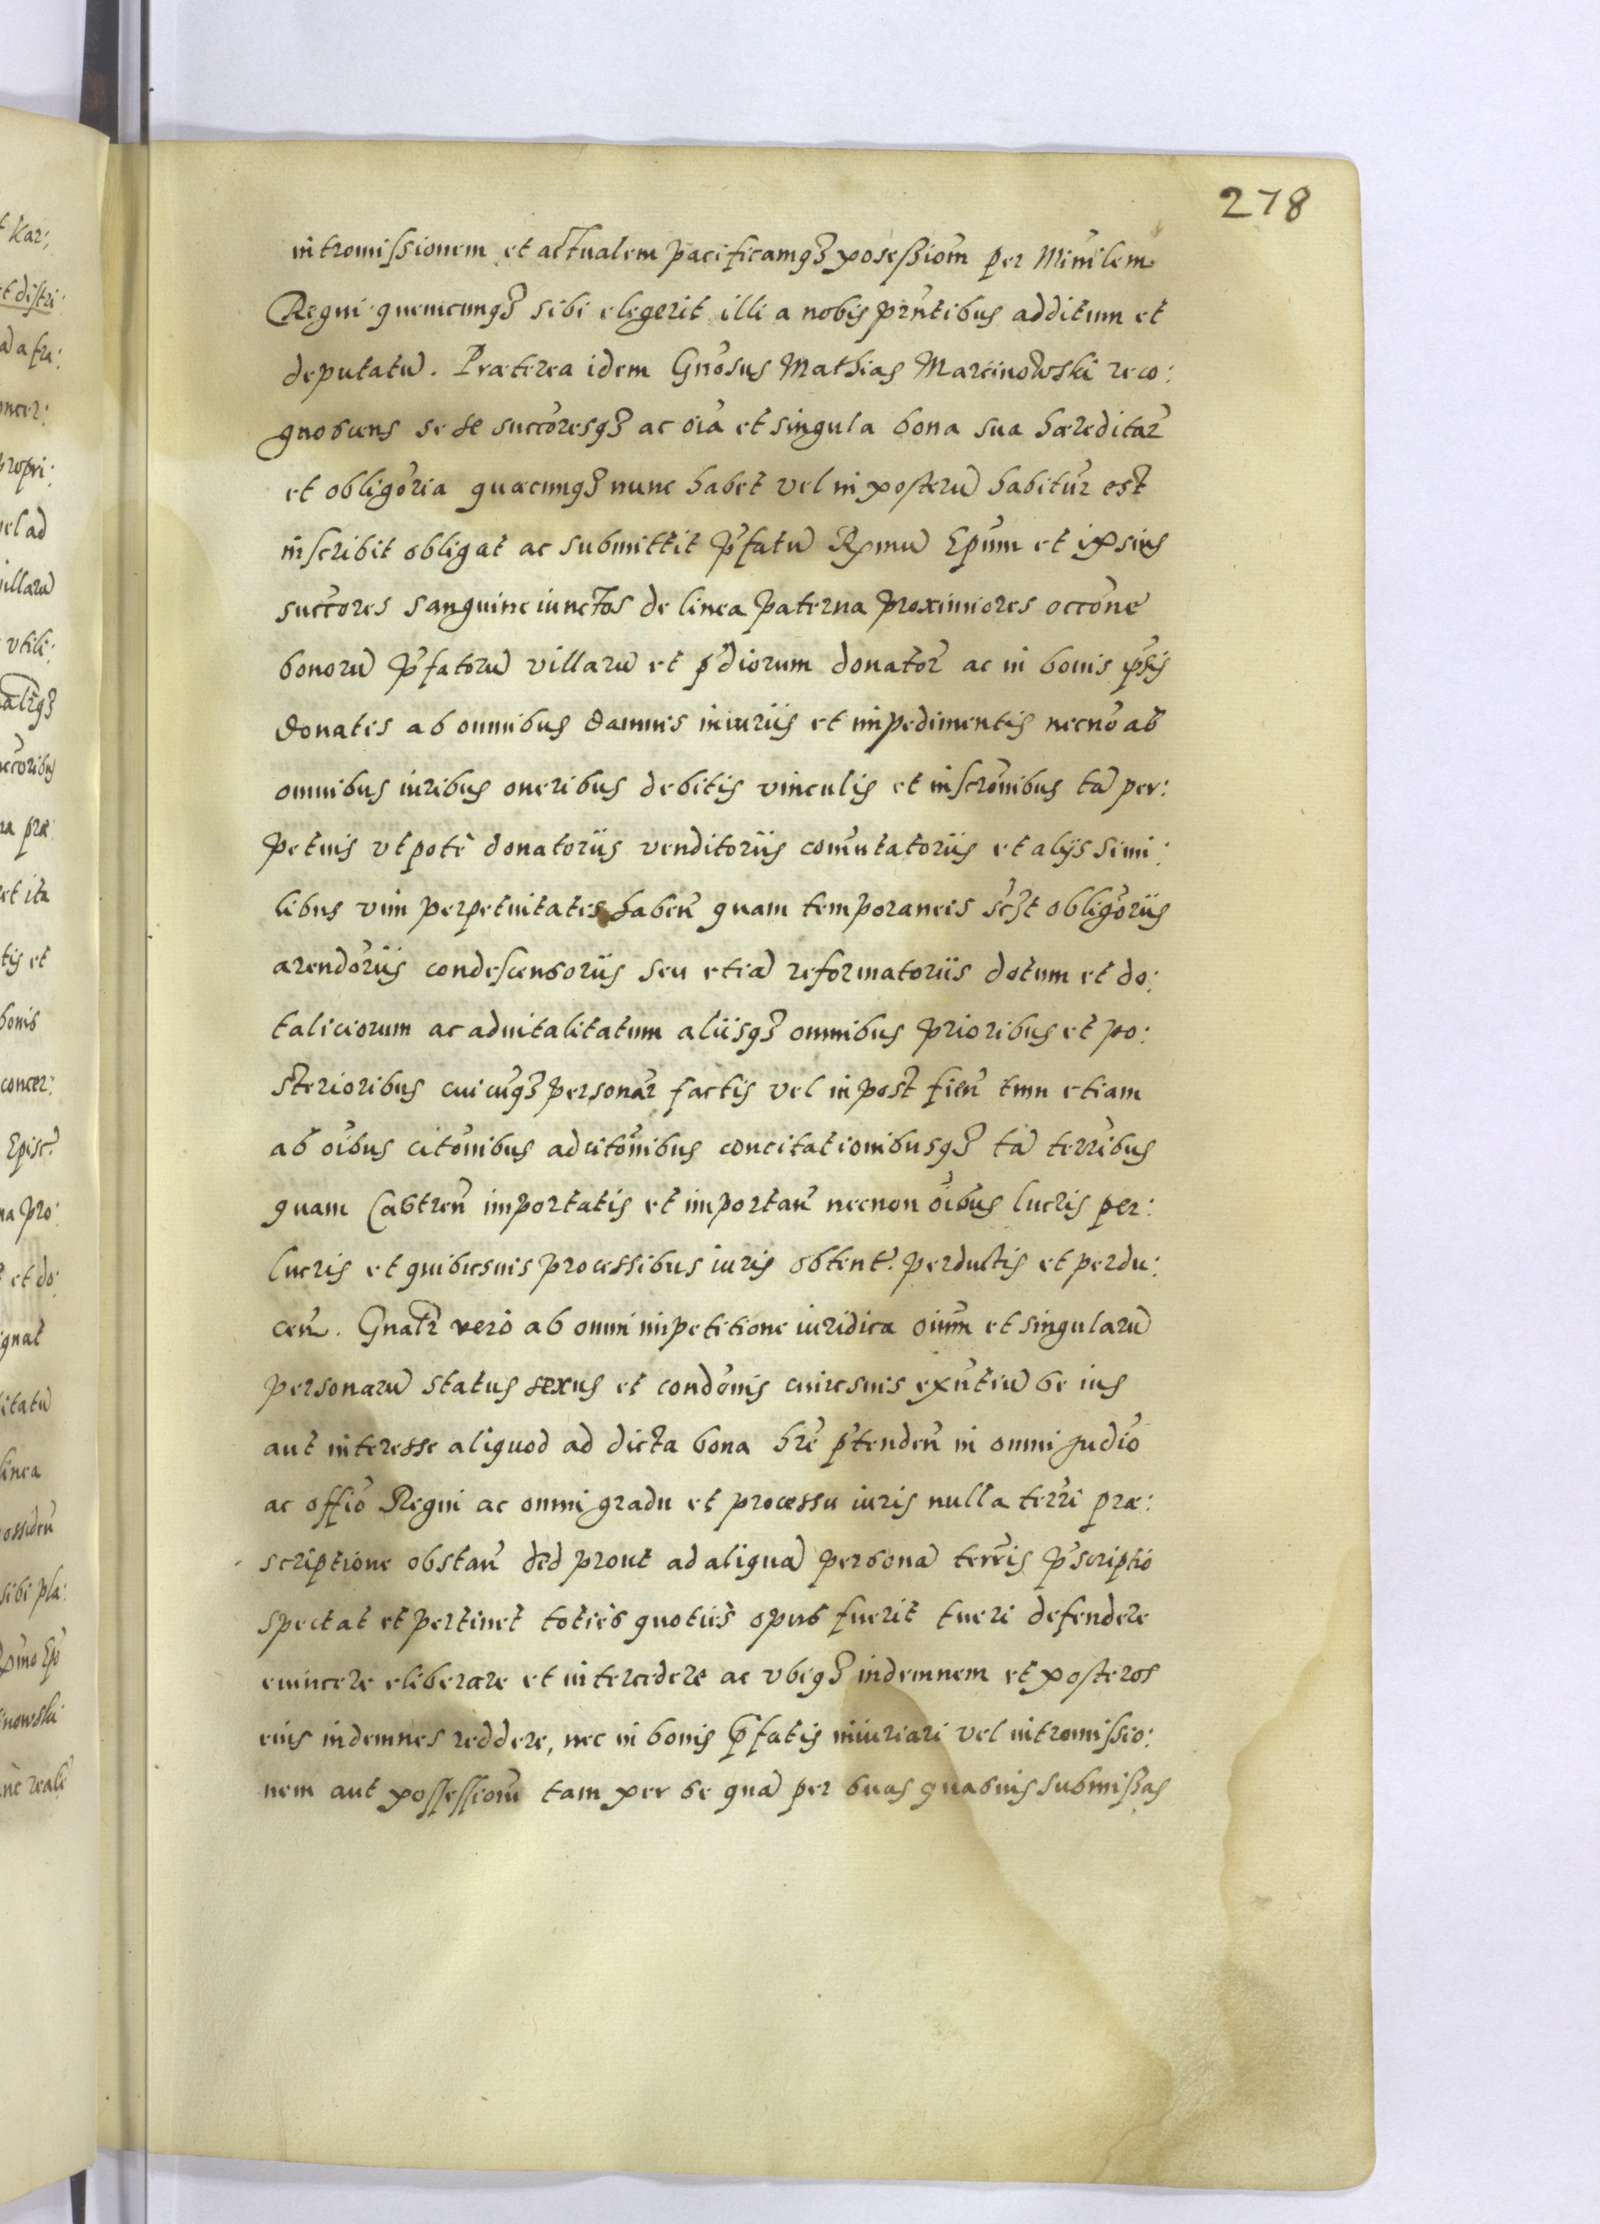 278
intromissionem et actualem pacificamq3 possessiom̃ per Miñilem
Regni quemcunq3 sibi elegerit illi a nobis prñtibus additum et
deputatũ. Præterea idem Gñosus Mathias Marcinowski reco:
gnoscens se de succõresq3 ac oĩa et singula bona sua hæreditar̃
et obligõria quæcunq3 nunc habet vel in posterũ habitũr est
inscribit obligat ac submittit p̃fatũ Rp̃mũ Ep̃um et ipsius
succõres sanguine iunctos de linea paterna proximiores occõne
bonorũ p̃fatorũ villarũ et p̃diorum donator̃ ac in bonis ip̃sis
donatis ab omnibus damnis iniuriis et impedimentis necnõ ab
omnibus iuribus oneribus debitis vinculis et inscrõnibus tã per:
petuis utpotè donatoriis venditoriis com̃utatoriis et alijs simi:
libus vim perpetuitatis habeñ quam temporaneis sc̃3t obligõriis
arendõriis condescensoriis seu etiã reformatoriis dotum et do:
taliciorum ac aduitalitatum aliisq3 omnibus prioribus et po:
sterioribus cuicũq3 personar̃ factis vel in post̃ fieñ tum etiam
ab oĩbus citõnibus adcitõnibus concitationibusq3 tã terr̃ibus
quam Castreñ importatis et importañ necnon oĩbus lucris per:
lucris et quibusuis processibus iuris obtent̃. perductis et perdu:
ceñ. Gñatr̃ verò ab omni impetitione iuridica oiũm et singularũ
personarũ status sexus et condõnis cuiusuis exũntiũ se ius
aut interesse aliquod ad dicta bona hr̃e p̃tendeñ in omni judiõ
ac offiõ Regni ac omni gradu et processu iuris nulla terr̃i præ:
scriptione obstañ sed prout ad aliquã personã terr̃is p̃scriptio
spectat et pertinet totiès quotiès opus fuerit tueri defendere
euincere eliberare et intercedere ac ubiq3 indemnem et posteros
eius indemnes reddere, nec in bonis p̃fatis iniuriari vel intromissio:
nem aut possessiom̃ tam per se quã per suas quasuis submissas